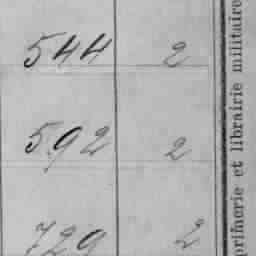 544 2
592 2
729 2
primerie et librairie militaire